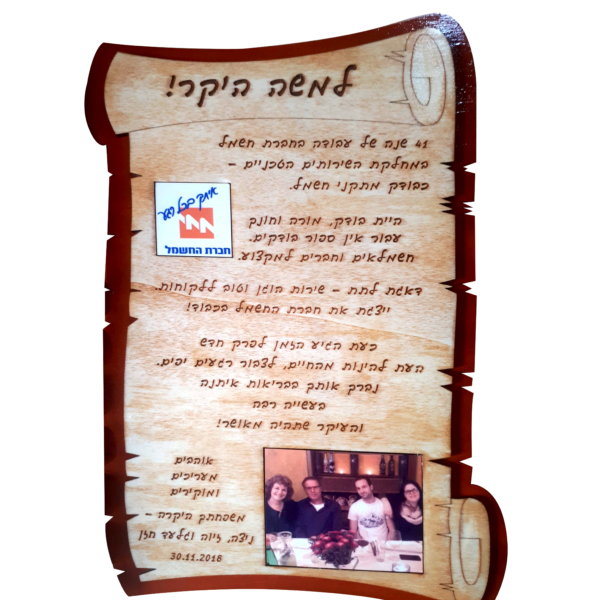 למשה היקר!
41 שנה של עבודה בחברת חשמל
במחלקת השירותים הטכניים –
כבודק מתקני חשמל.
איתך בכל רגע
חברת החשמל
היית בודק, מורה וחונך
עבור אין ספור בודקים.
חשמלאים וחברים למקצוע.
דאגת לתת – שירות הוגן וטוב ללקוחות.
ייצגת את חברת החשמל בכבוד!
כעת הגיע הזמן לפרק חדש
העת להינות מהחיים, לצבור רגעים יפים.
נברך אותך בבריאות איתנה
בעשייה רבה
והעיקר שתהיה מאושר!
אוהבים
מעריכים
ומוקירים
משפחתך היקרה –
ניצה, זיוה וגלעד חזן
30.11.2018